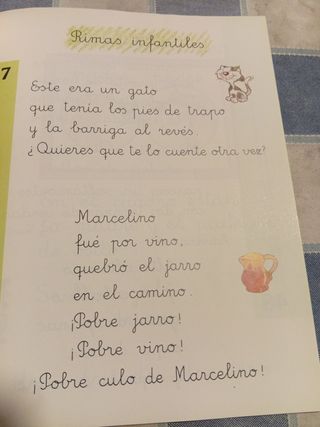 Rimas infantiles
7
Este era un gato
que tenía los pies de trapo
y la barriga al revés.
¿Quieres que te lo cuente otra vez?
Marcelino
fué por vino,
quebró el jarro
en el camino.
¡Pobre jarro!
¡Pobre vino!
¡Pobre culo de Marcelino!